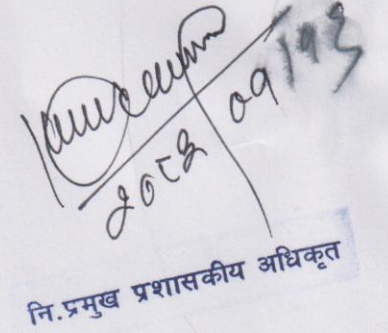 २०८३/०१/१३
नि.प्रमुख प्रशासकीय अधिकृत